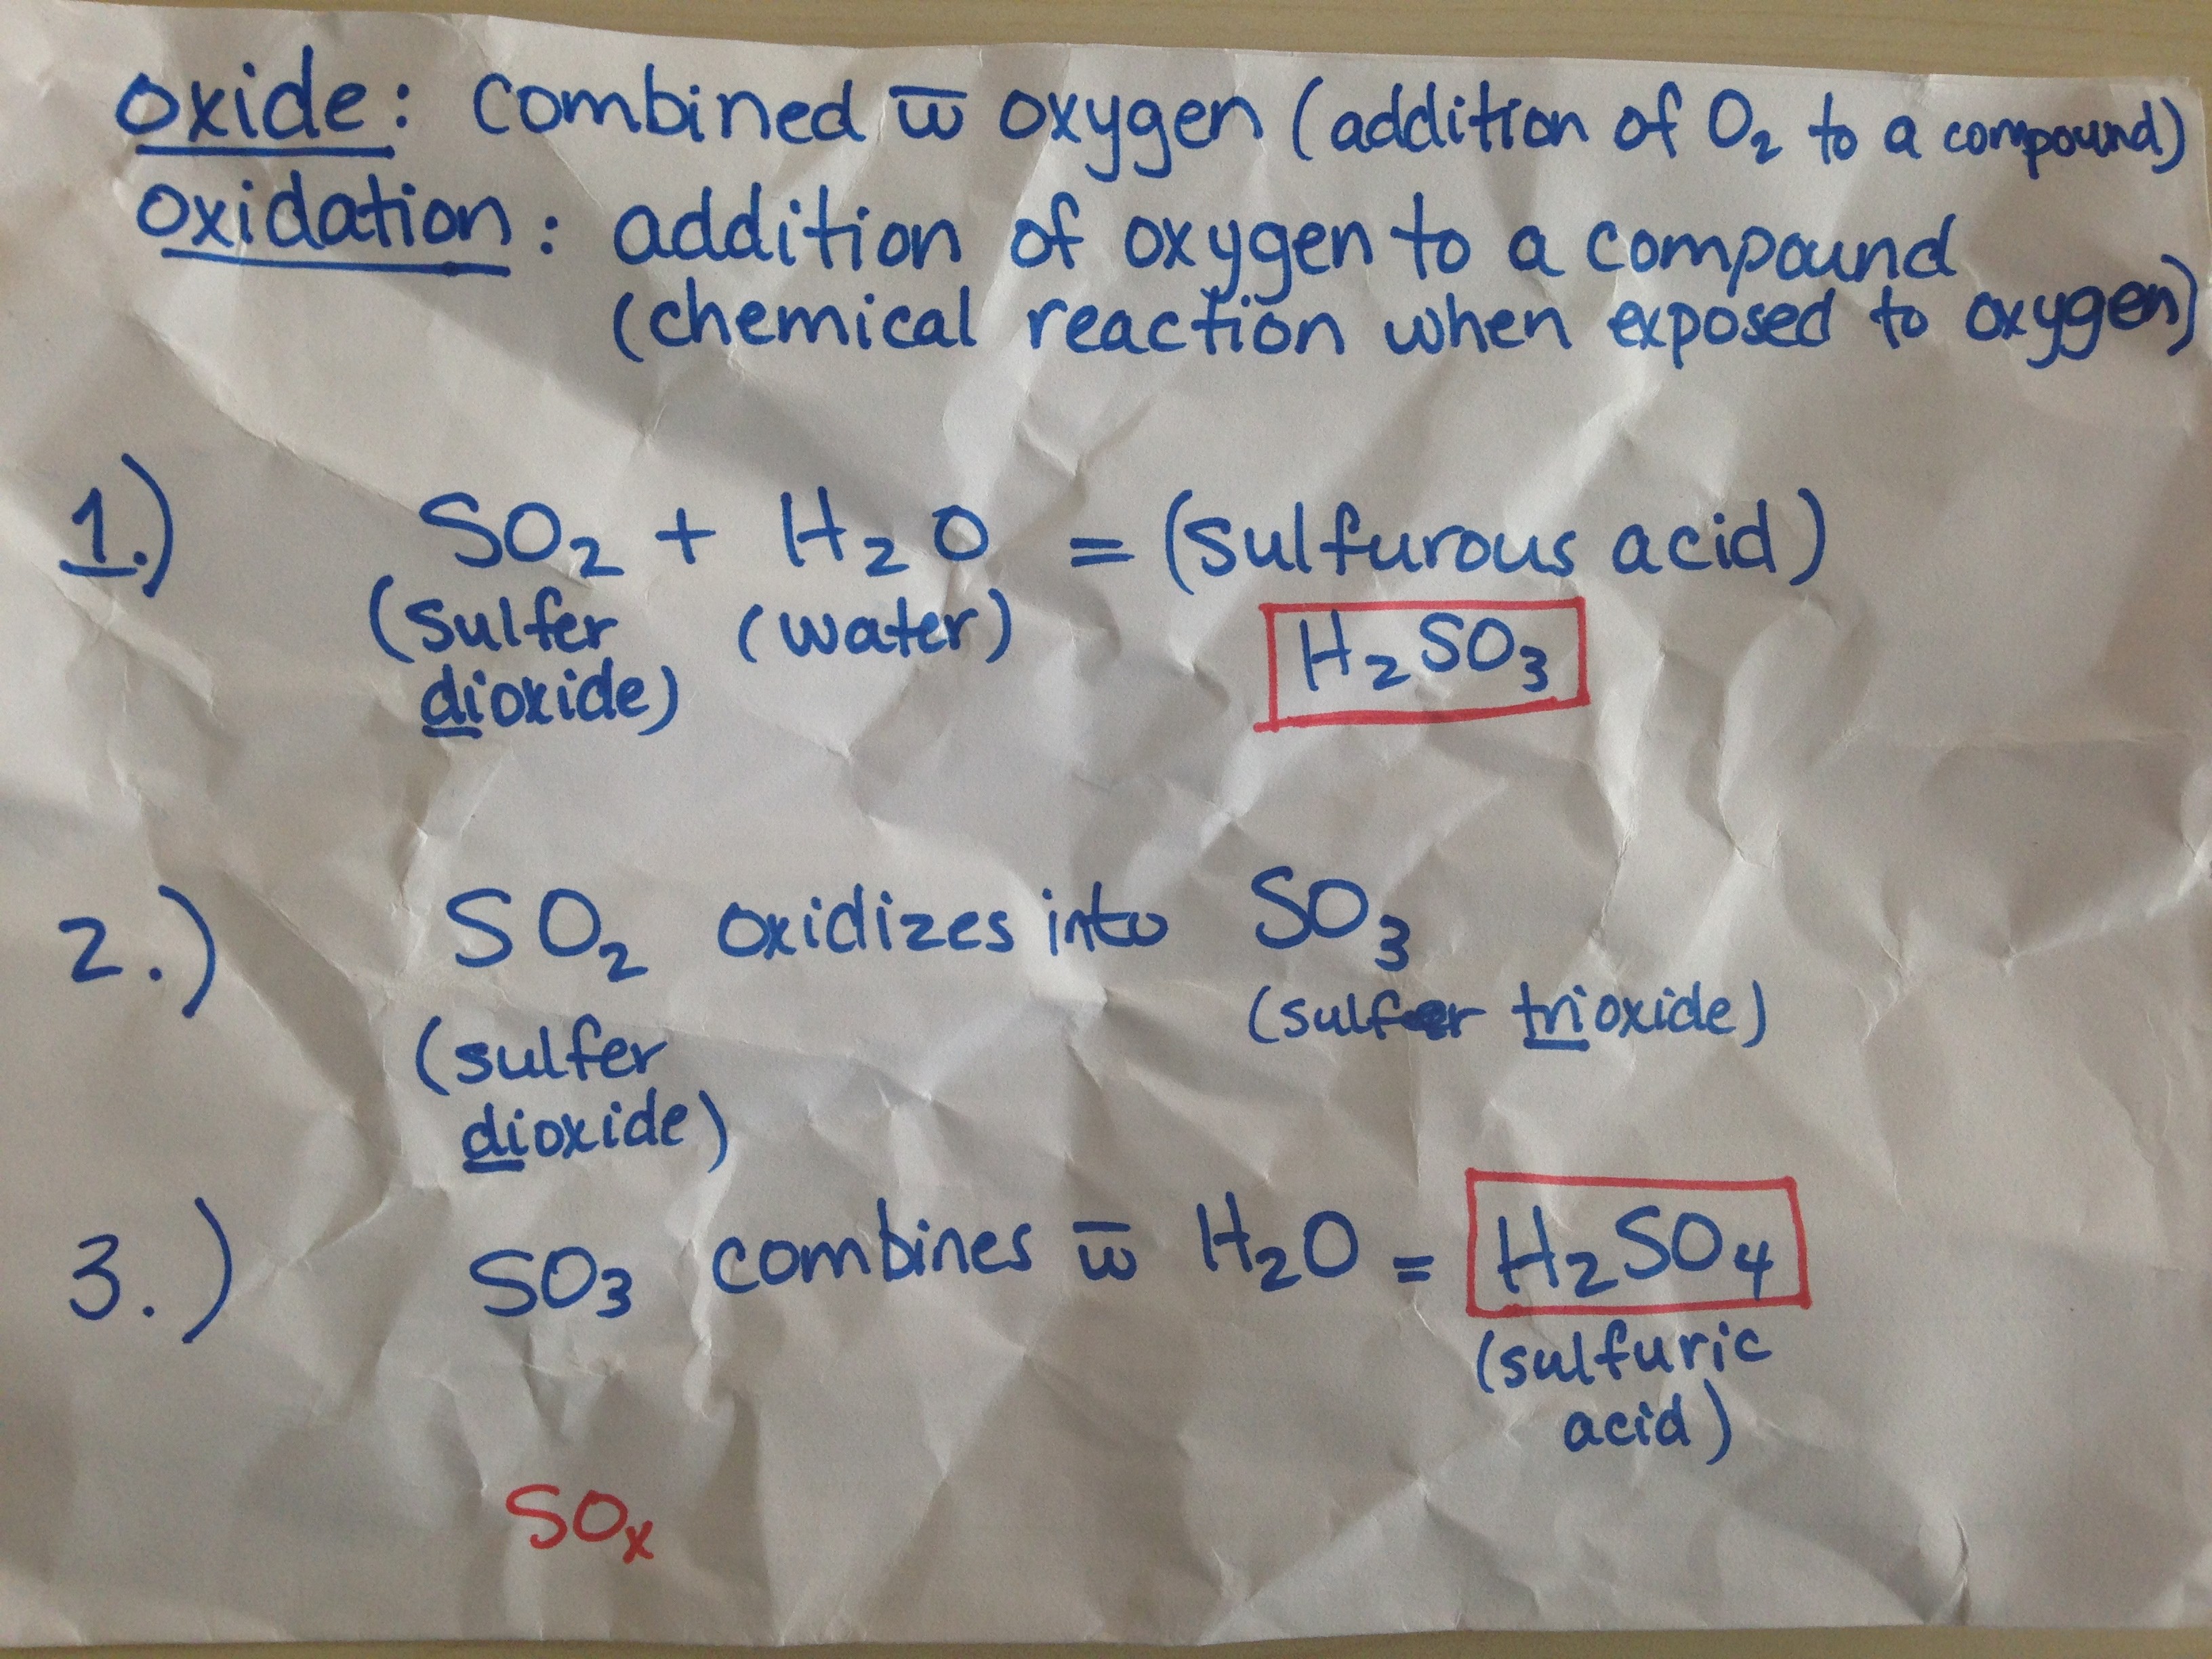 oxide: combined w̅ oxygen (addition of O₂ to a compound)
oxidation: addition of oxygen to a compound
(chemical reaction when exposed to oxygen)
1.) SO₂ + H₂O = (sulfurous acid)
(sulfer (water) H₂SO₃
dioxide)
2.) SO₂ oxidizes into SO₃
(sulfer trioxide)
(sulfer
dioxide)
3.) SO₃ combines w̅ H₂O = H₂SO₄
(sulfuric
acid)
SOₓ